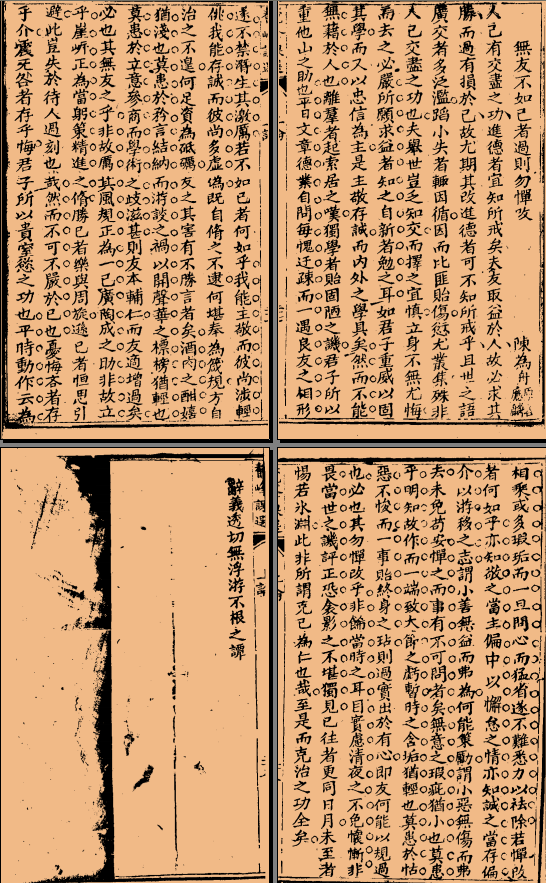 無友不如己者過則勿憚改　陳為舟
人己有交盡之功進德者宜知所戒矣夫友取益於人故必求其
勝而過有損於己故尤期其改進德者可不知所戒乎且世之語
廣交者多泛濫蹈小失者輒因循因而比匪貽傷愆尤叢集殊非
人己交盡之功也夫舉世豈乏知交而擇之宜慎立身不無尤悔
而去之必嚴所願求益者知之自新者勉之耳如君子重威以固
其學而又以忠信為主是主敬存誠而內外之學具矣然而不能
無藉於人也離羣者起索居之嘆獨學者貽固陋之譏君子所以
重他山之助也平日文章德業自問每愧迂疎而一遇良友之相形
遂不禁潛生其激厲若不如己者何如乎我能主敬而彼尚浮輕
佻我能存誠而彼尚多虛偽既自脩之不逮何堪奉為箴規方自
治之不遑何足資為砥礪友之其害有不勝言者矣酒肉之酣嬉
猶淺也莫患於矜言結納而游談之以開聲華之標榜猶輕也
莫患於立意參商而學術之歧滋甚則友本輔仁而友適增過矣
必也其無友之乎非故厲其風規正為一己廣陶成之助非故立
乎崖岸正為當躬策精進之脩勝己者樂與周旋遜己者恒思引
避此豈失於待人過刻也哉然而不可不嚴於己也憂悔吝者存
乎介震无咎者存乎悔君子所以貴察慝之功也平時動作云為
相乘或多瑕垢而一旦問心而猛省遂不難悉力以祛除若憚改
者何如乎亦知敬之當主偏中以懈怠之情亦知誠之當存偏
介以游移之志謂小善無益而弗為何能策勵謂小惡無傷而弗
去未免苟安憚之而事有不可問者矣無意之瑕疵猶小也莫患
乎明知故作而一端致大節之虧暫時之含垢猶輕也莫患於怙
惡不悛而一事貽終身之玷則過實出於有心即友何能以規過
也必也其勿憚改乎非飾當時之耳目實慮清夜之不免懷慚非
畏當世之譏評正恐衾影之不堪獨見已往者更同日月未至者
惕若氷淵此非所謂克己為仁也哉至是而克治之功全矣
辭義透切無浮游不根之譚